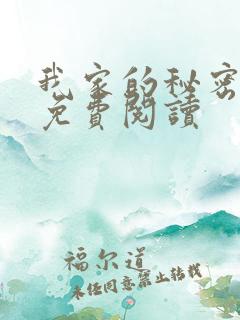 我家的秘密
免費閱讀
福尔道
未经同意禁止转载